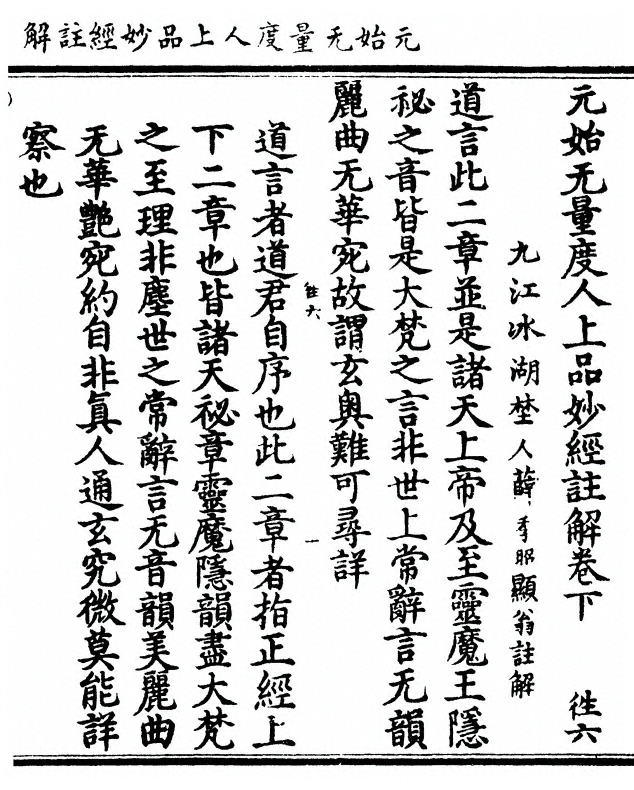 元始无量度人上品妙經註解
元始无量度人上品妙經註解卷下 徃六
九江冰湖埜人薛季昭顯翁註解
道言此二章並是諸天上帝及至靈魔王隱
秘之音皆是大梵之言非世上常辭言无韻
麗曲无華宛故謂玄奥難可尋詳
徃六 一
道言者道君自序也此二章者指正經上
下二章也皆諸天秘章靈魔隱韻盡大梵
之至理非塵世之常辭言无音韻美麗曲
无華艷宛約自非真人通玄究微莫能詳
察也